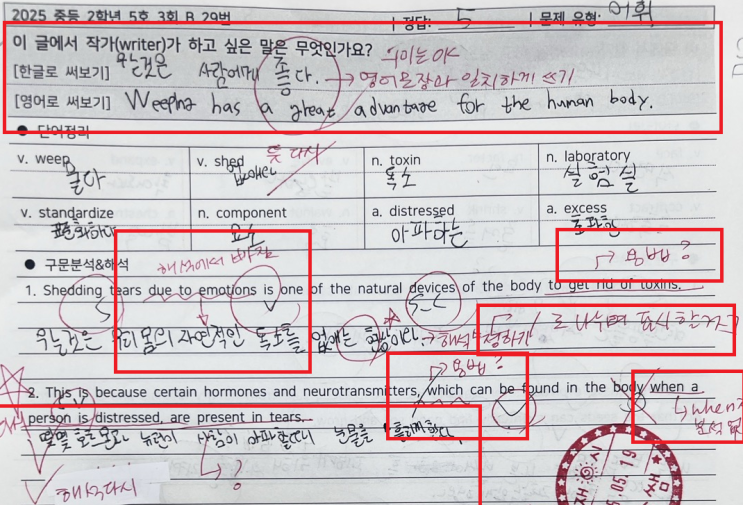 2025 중등 2학년 5호 3회 B 29번 | 정답: 5 | 문제 유형: 어휘
이 글에서 작가(writer)가 하고 싶은 말은 무엇인가요? 의미는 OK
[한글로 써보기] 우는것은 사람에게 좋다. → 영어문장과 일치하게 쓰기
[영어로 써보기] Weeping has a great advantage for the human body.
● 단어정리
v. weep v. shed 뜻 다시 n. toxin n. laboratory
울다 없애다 독소 실험실
v. standardize n. component a. distressed a. excess
표준화하다 요소 아파하는 초과한
● 구문분석&해석 해석에서 빠짐 → 용법?
1. Shedding tears due to emotions is one of the natural devices of the body to get rid of toxins.
S V S.C
우는것은 우리몸의 자연적인 독소를 없애는 현상이다. → 해석 수정하기 / 로 나누며 표시한거?
→ 용법?
2. This is because certain hormones and neurotransmitters, which can be found in the body when a
person is distressed, are present in tears.
몇몇 호르몬과 뉴런이 사람이 아파할때 눈물을
해석다시 ?
05. 19